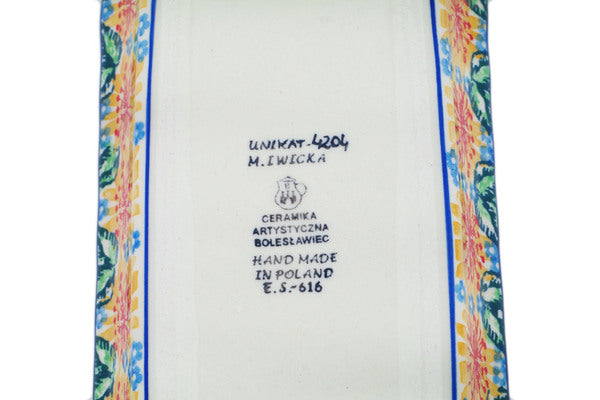 UNIKAT-4204
M.IWICKA
CERAMIKA
ARTYSTYCZNA
BOLESŁAWIEC
HAND MADE
IN POLAND
E.S.-616